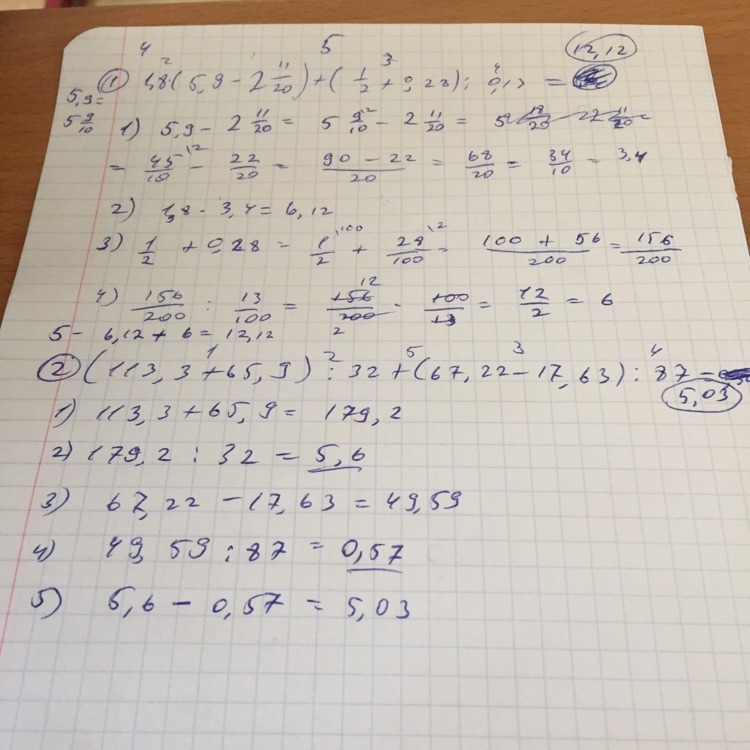 4 5 12,12
① 1,8(5,9 - 2 11/20) + (1/2 + 0,28) : 0,13 =
5,9 = 5 9/10
1) 5,9 - 2 11/20 = 5 9/10 - 2 11/20 =
= 45/10 - 22/20 = 90 - 22/20 = 68/20 = 34/10 = 3,4
2) 1,8 · 3,4 = 6,12
3) 1/2 + 0,28 = 1/2 + 28/100 = 100 + 56/200 = 156/200
4) 156/200 : 13/100 = 156/200 · 100/13 = 12/2 = 6
5 - 6,12 + 6 = 12,12
② (113,3 + 65,9) : 32 + (67,22 - 17,63) : 87 =
5,03
1) 113,3 + 65,9 = 179,2
2) 179,2 : 32 = 5,6
3) 67,22 - 17,63 = 49,59
4) 49,59 : 87 = 0,57
5) 5,6 - 0,57 = 5,03